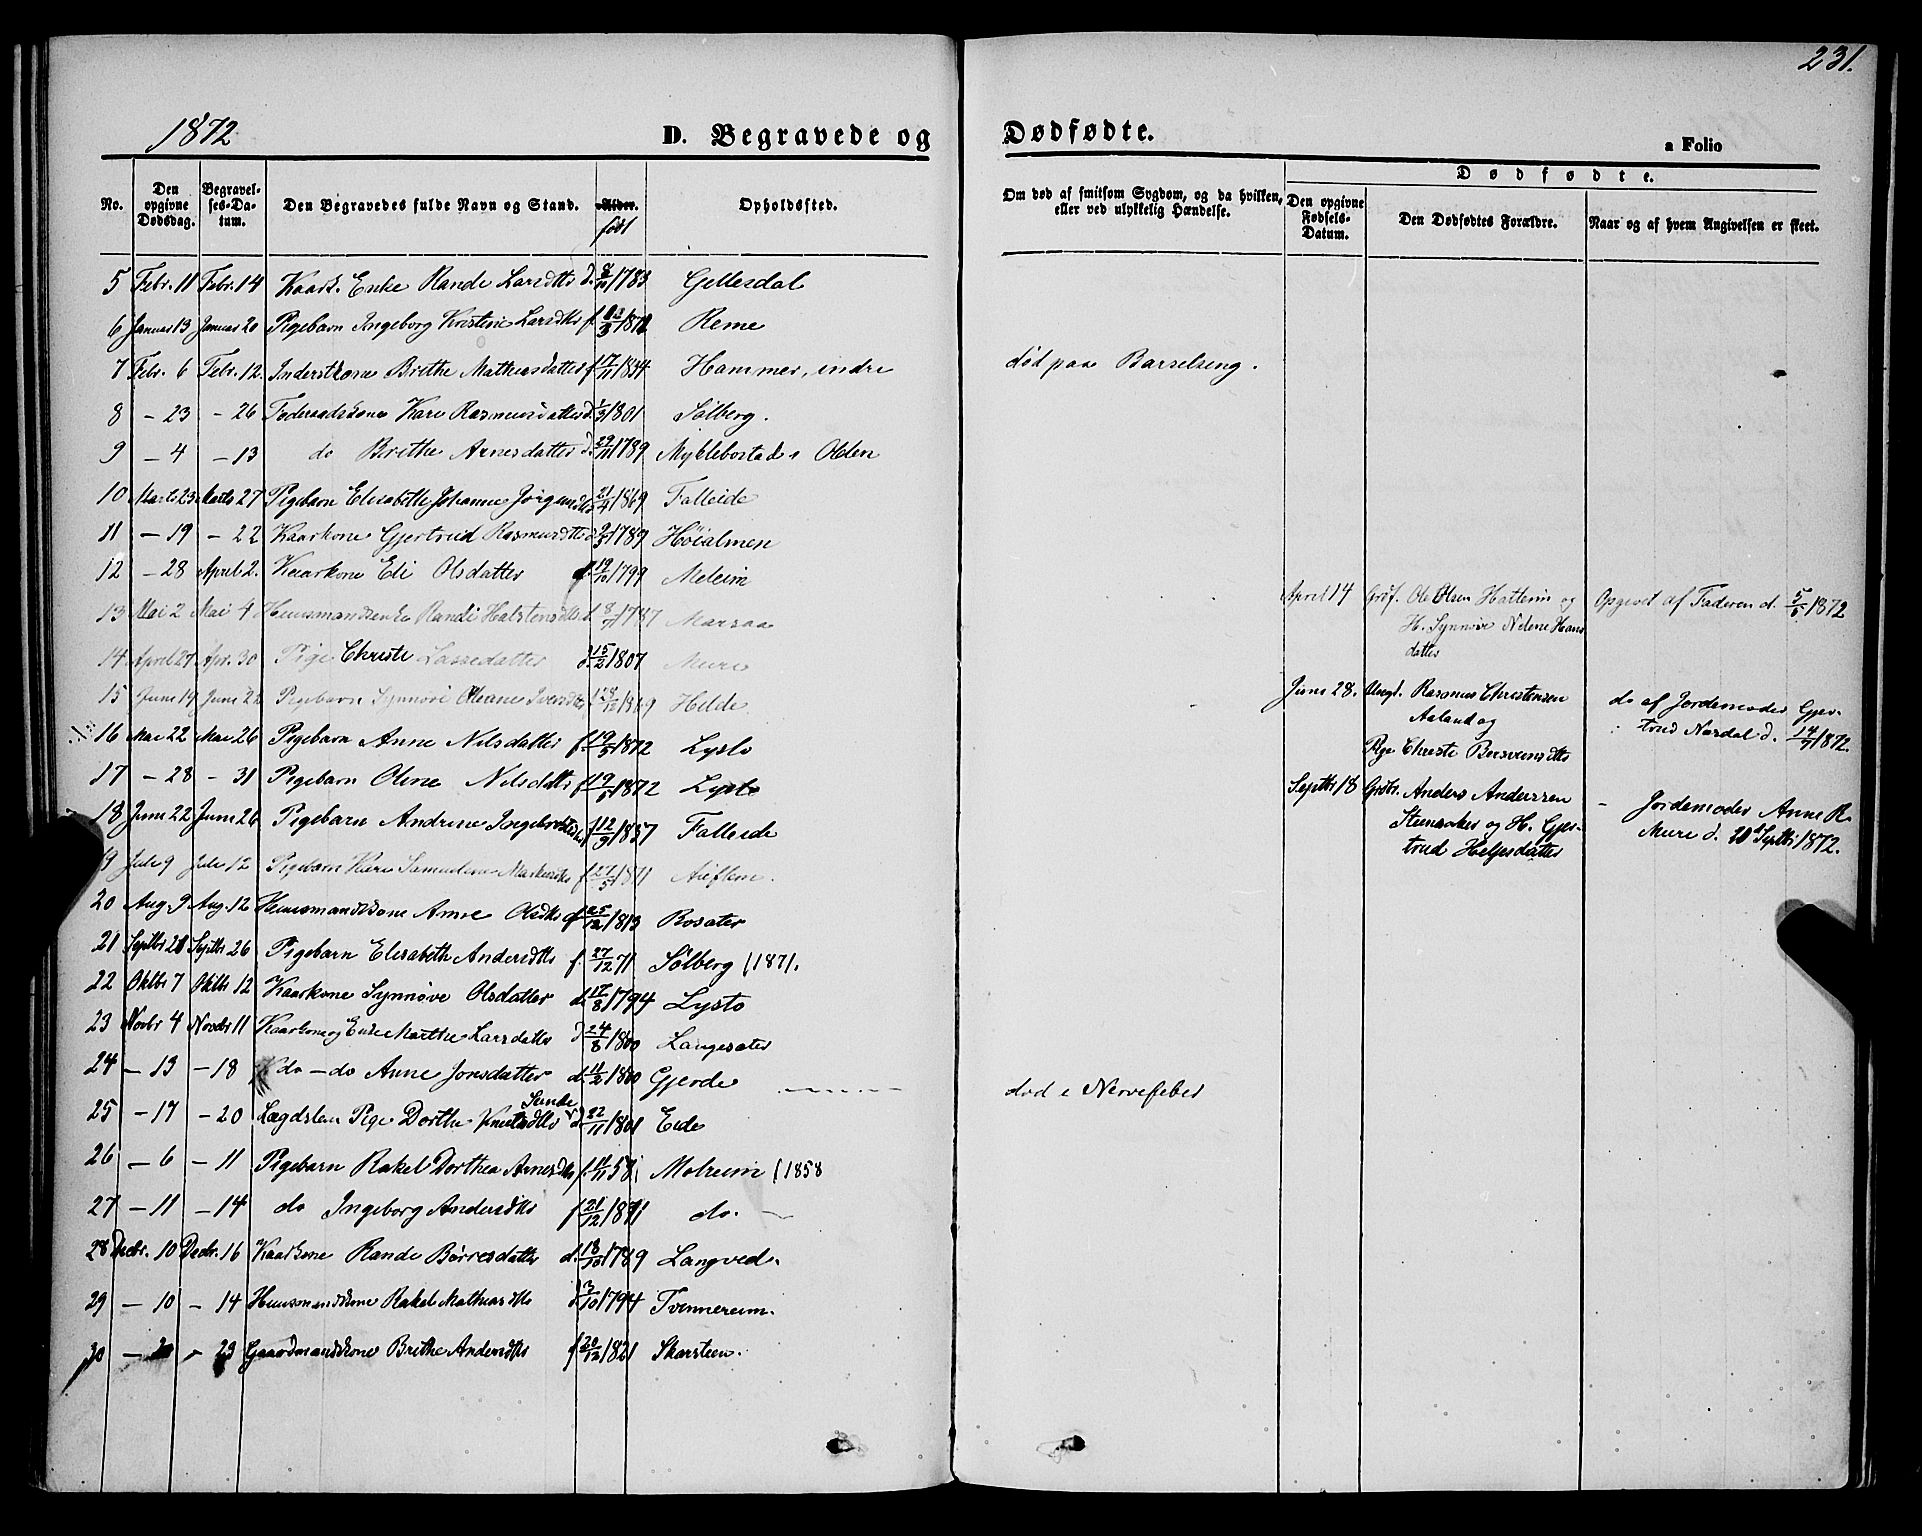 231.
1872
D. Begravede og Dødfødte.
a Folio
No.
Den opgivne Dødsdag.
Begravelses-Datum.
Den Begravedes fulde Navn og Stand.
Alder. født
Opholdssted.
Om død af smitsom Sygdom, og da hvilken, eller ved ulykkelig Hændelse.
Dødfødte.
Den opgivne Fødsels-Datum.
Den Dødfødtes Forældre.
Naar og af hvem Angivelsen er skeet.
5 Febr. 11 Febr. 14 Kaark. Enke Rande Larsdtts d. 1783 Gellesdal
6 Januar 13 Januar 20 Pigebarn Ingeborg Kristine Larsdtts f. Reme
7 Febr. 6 Febr. 12. Mathiasdatter f 17/11 1834 Hammer, indre død paa Barselseng.
8 - 23 - 26 Føderaadskone Kari Rasmusdatter d. 1/3 1801 Sølberg.
9 - 4 - 13 do Brithe Arnesdatter d. 29/11 1789 Myklebostad i Olden
10 Marts 23 Marts 27 Pigebarn Elisabeth Johanne Jørgensdtts 21/4 1869 Falleide
11 - 19 - 22 Kaarkone Gjertrud Rasmusdtts d 1789 Høialmen
12 - 28 April 2. Kaarkone Eli Olsdatter d. 19/10 1799 Meleim
13 Mai 2 Mai 4 Huusmandsenke Randi Halstensdtts d. 8/7 1787 Marsaa
14 April 27 Apr. 30 Pige Christi Lassedatter d. 15/2 1807 Muri
15 Juni 19 Juni 22 Pigebarn Synnøve Oleane Iversdtts f 28/12 1869 Hilde
16 Mai 22 Mai 26 Pigebarn Anne Nilsdatter f. 19/5 1872 Lyslo
17 - 28 - 31 Pigebarn Oline Nilsdatts f 19/5 1872 Lyslo
18 Juni 22 Juni 26 Pigebarn Andrine f 12/9 1857 Falleide
19 Juli 9 Juli 12 Pigebarn Kari f. 27/5 1871 Aaflem.
20 Aug. 9 Aug. 12 Huusmandskone Anne Olsdtts f 25/12 1813 Rosater
21 Septbr 21 Septbr 26 Pigebarn Elisabeth Andersdtts f. 27/12 71 Sølberg (1871.
22 Oktbr 7 Oktbr 12 Kaarkone Synnøve Olsdatter d. 17/8 1794 Lyslo
23 Novbr 4 Novbr 11 Kaarkone og Enke Marthe Larsdatts d 24/8 1800 Langesater
24 - 13 - 18 do - do Anne Jonsdatter d. 11/2 1800 Gjerde død i Nervefeber
25 - 17 - 20 Lægdslem Pige Dorthe Knutsdtts Sunde d 22/11 1801 Eide
26 - 6 - 11 Pigebarn Rakel Dorthea Arnesdtts f. 11/11 58, Molreim (1858
27 - 11 - 14 do Ingeborg Andersdtts f 21/12 1871 do.
28 Decbr. 10 Decbr. 16 Kaarkone Rande Børresdatter d. 18/10 1789 Langved.
29 - 10 - 14 Huusmandskone Rakel Mathiasdtts d 3/10 1794 Tvinnereim.
30 - 20 - 23 Gaardmandskone Brithe Andersdtts f 20/12 1821 Skarsteen.
April 14 Grdf. Ole Olsen Hatlerin og
H. Synnøve Nelene Hans
datter
Opgivet af Faderen d. 5/5 1872
Juni 28. Ungk. Rasmus Christensen
Aaland og
Pige Christi Bersvensdtts
do af Jordemoder Gjer-
trud Nordal d. 14/7 1872.
Septbr 18 Grdbr. Anders Anderssen
Steensaker og H. Gjer-
trud Helgesdatter
- Jordemoder Anne R.
Muri d. 20de Septbr 1872.